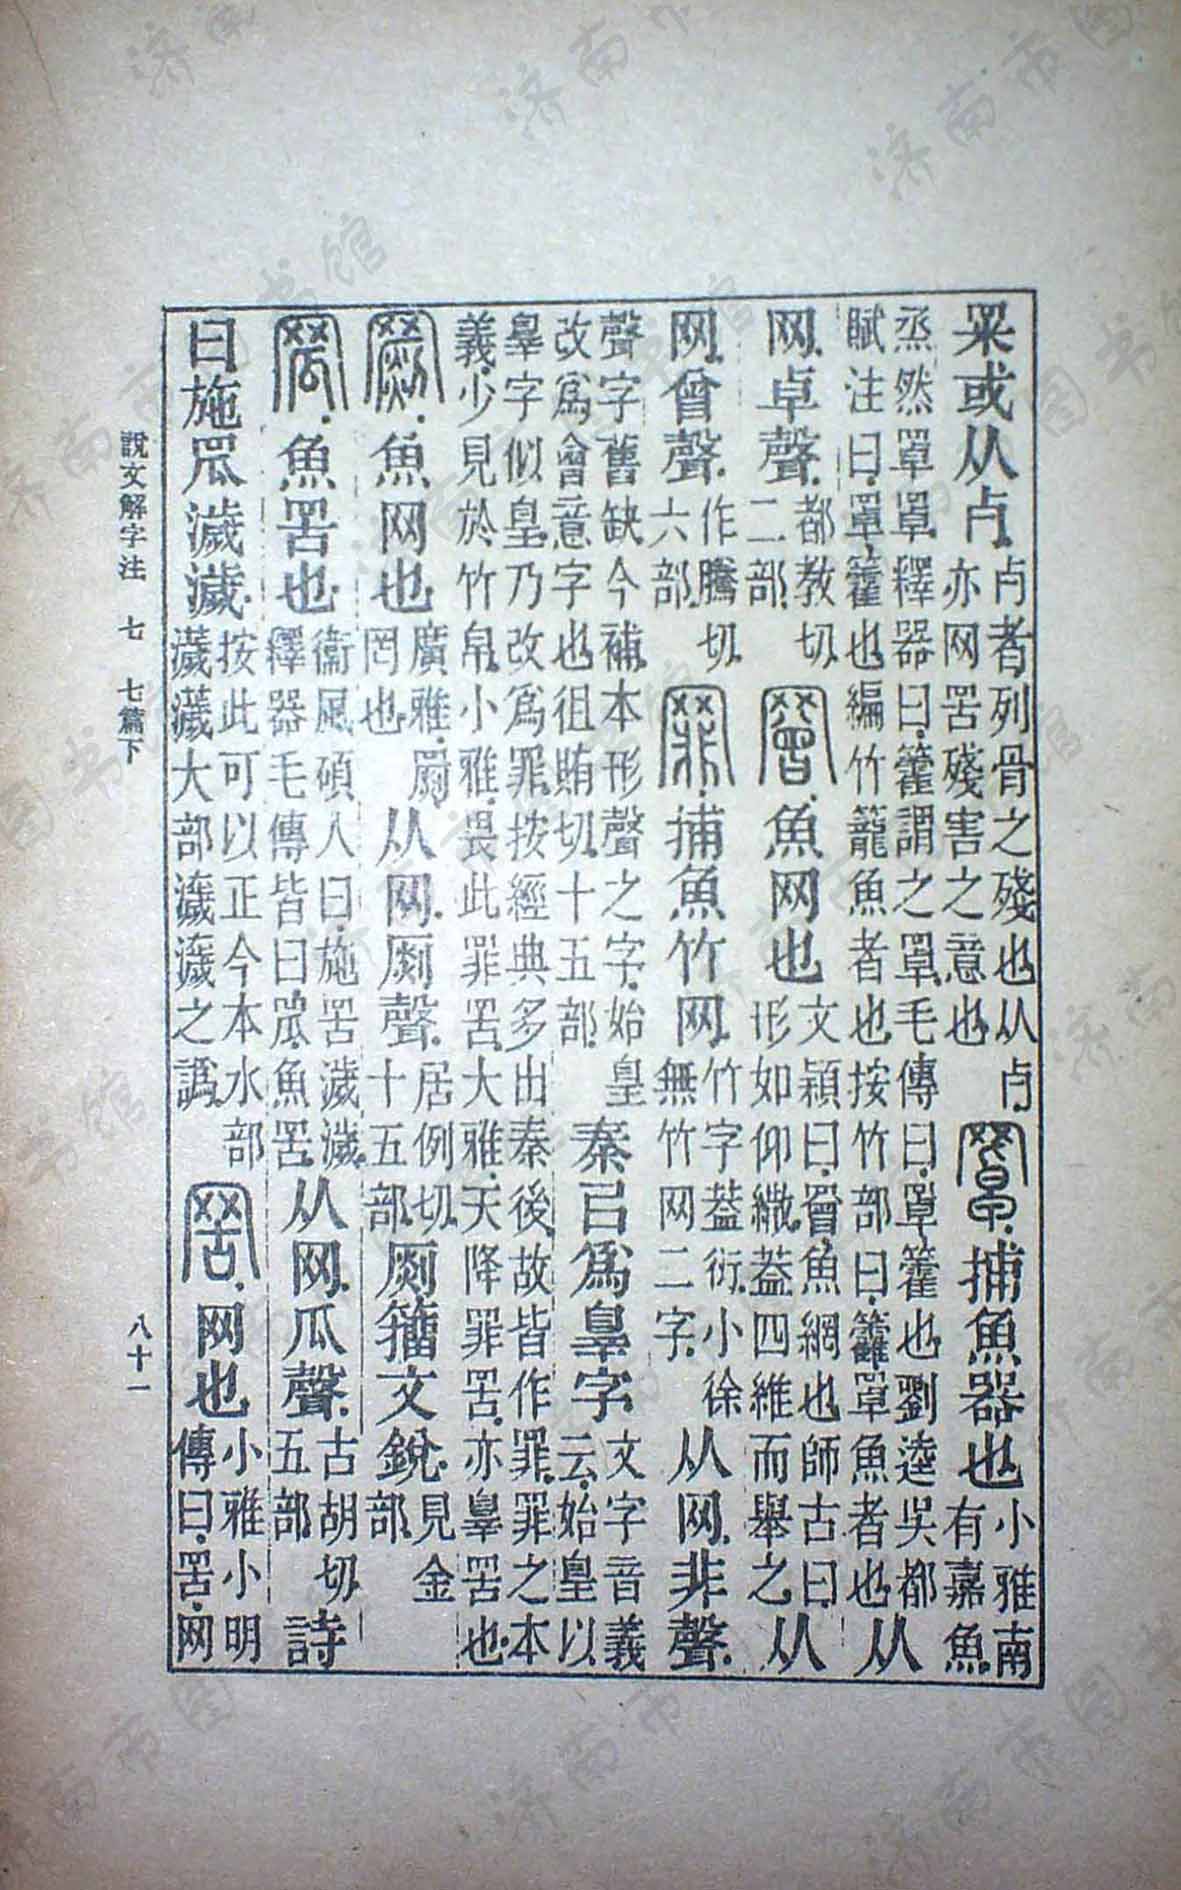 罙或从𣦵𣦵者列骨之殘也从𣦵亦网罟殘害之意也罩捕魚器也小雅南有嘉魚
烝然罩罩釋器曰籗謂之罩毛傳曰罩籗也劉逵吳都賦注曰罩籗也編竹籠魚者也按竹部曰籱罩魚者也从
网卓聲都教切二部罾魚网也文穎曰罾魚網也師古曰形如仰繖葢四維而舉之从
网曾聲作騰切六部罪捕魚竹网竹字葢衍小徐無竹网二字从网非聲
聲字舊缺今補本形聲之字始皇改爲會意字也徂賄切十五部秦㠯爲辠字文字音義云始皇以
辠字似皇乃改爲罪按經典多出秦後故皆作罪罪之本義少見於竹帛小雅畏此罪罟大雅天降罪罟亦辠罟也
罽魚网也廣雅罽罔也从网㓹聲居例切十五部㓹籒文銳見金部
罛魚罟也衞風碩人曰施罟濊濊釋器毛傳皆曰罛魚罟从网瓜聲古胡切五部詩
曰施罛濊濊按此可以正今本水部濊濊大部濊濊之譌罟网也小雅小明傳曰罟网
說文解字注 七 七篇下 八十一
济南市图书馆